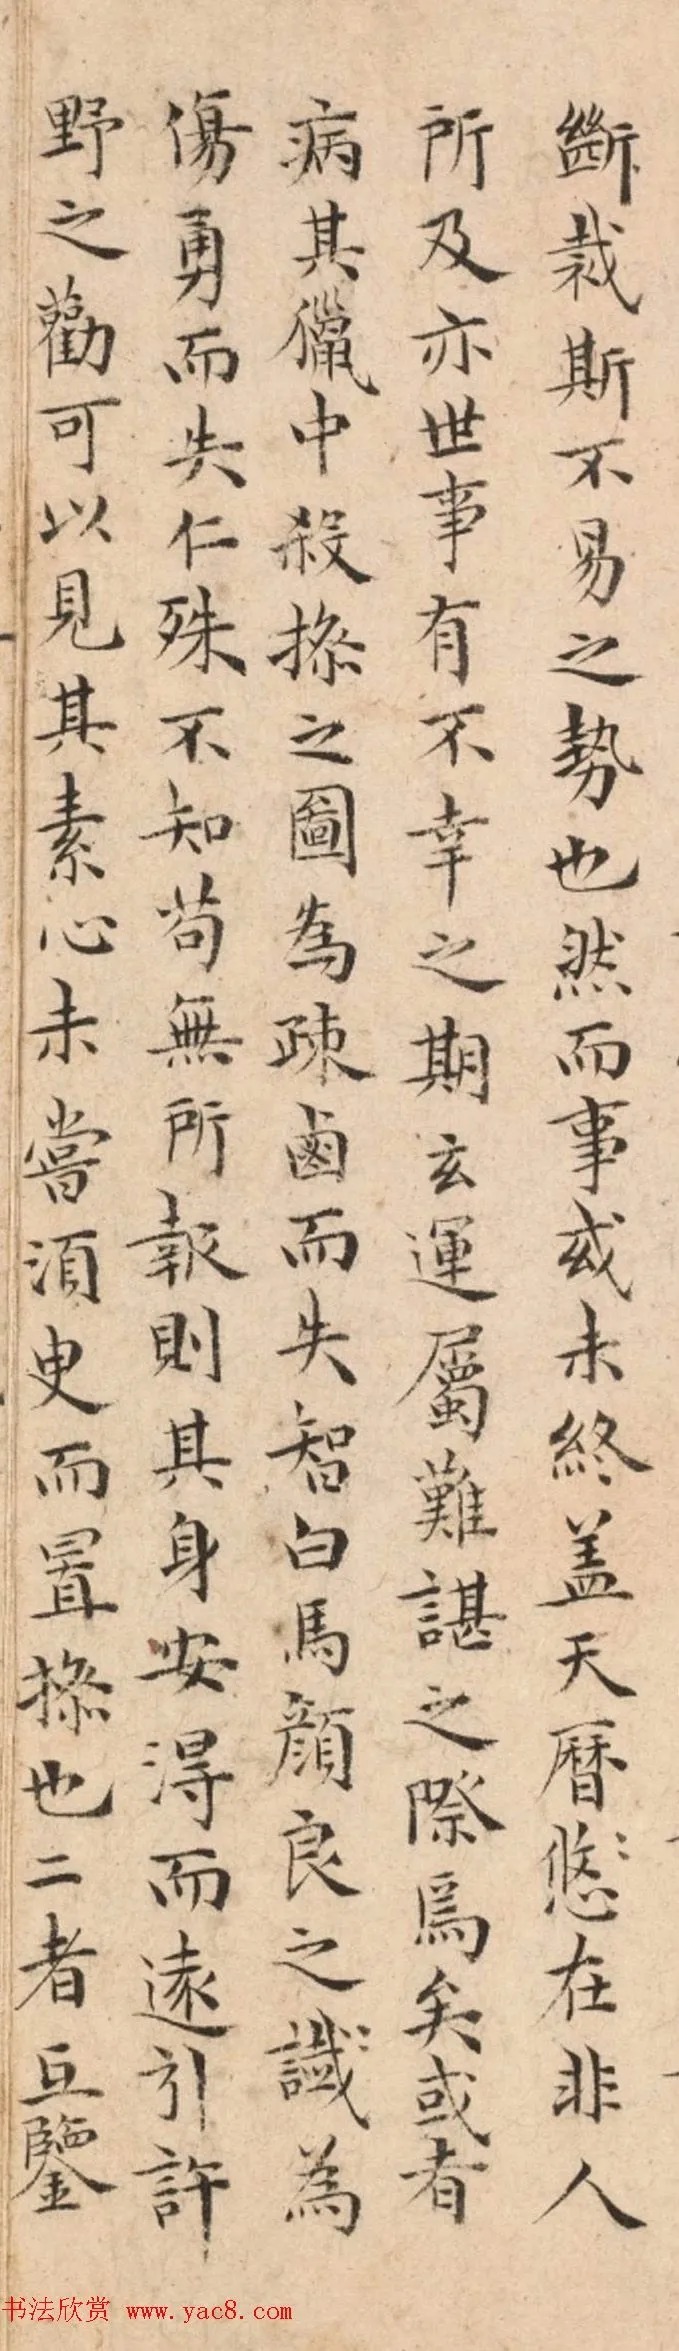 斷裁斯不易之勢也然而事或未終盖天曆悠〻在非人
所及亦世事有不幸之期玄運屬難諶之際焉矣或者
病其獵中殺操之圖為疎鹵而失智白馬顔良之誠〻為
傷勇而失仁殊不知苟無所報則其身安得而遠引許
野之勸可以見其素心未嘗湏臾而置操也二者互鑒
书法欣赏 www.yac8.com